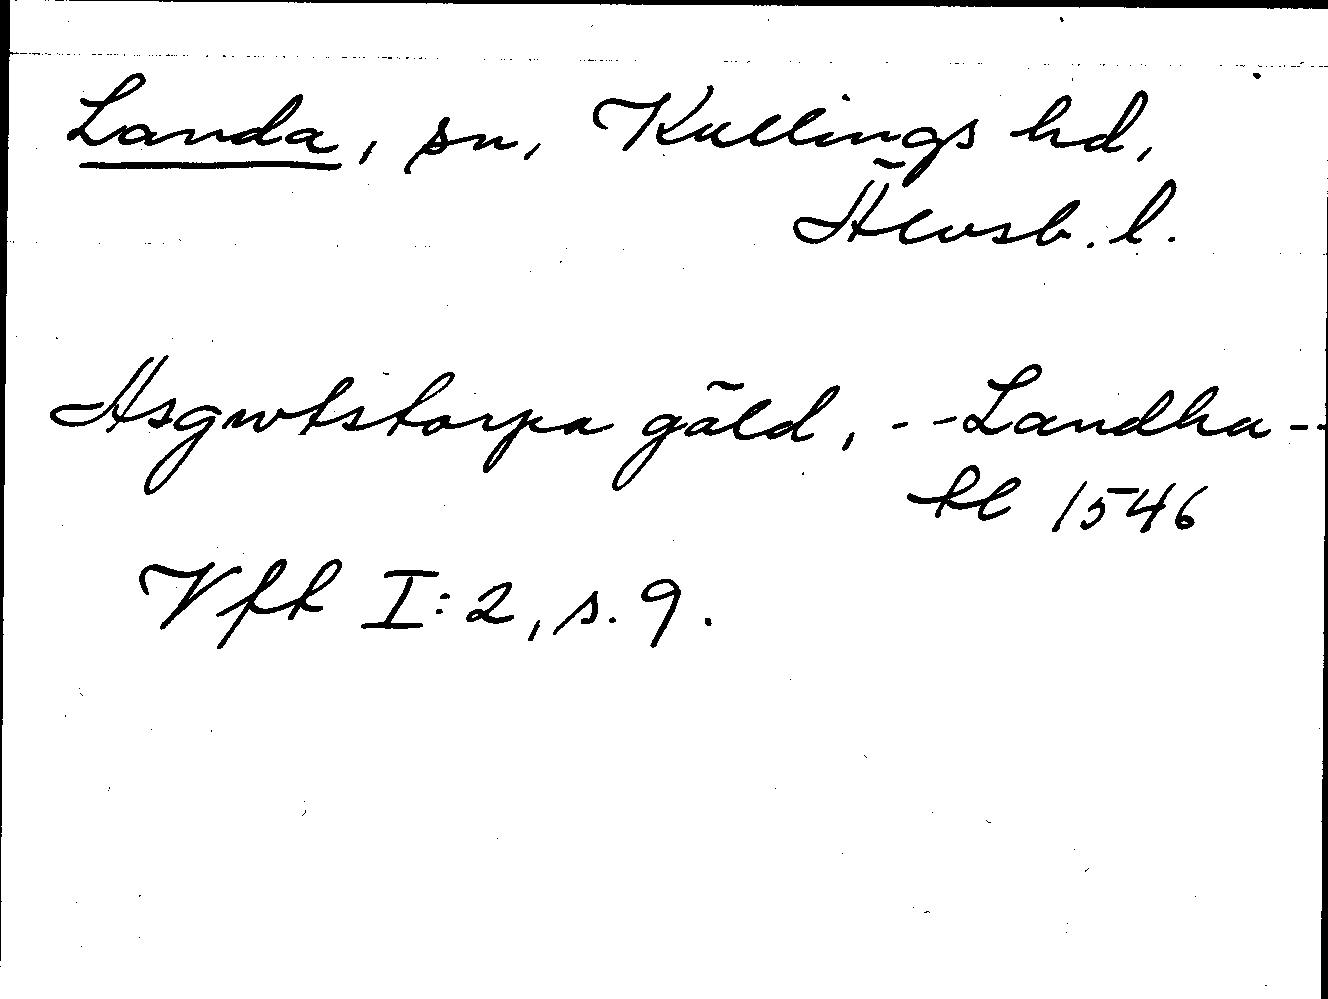 Landa, sn, Kullings hd,
Älvsb. l.
Asgwtstorpa gäld, --Landha--
kl 1546
Vfk I:2, s. 9.